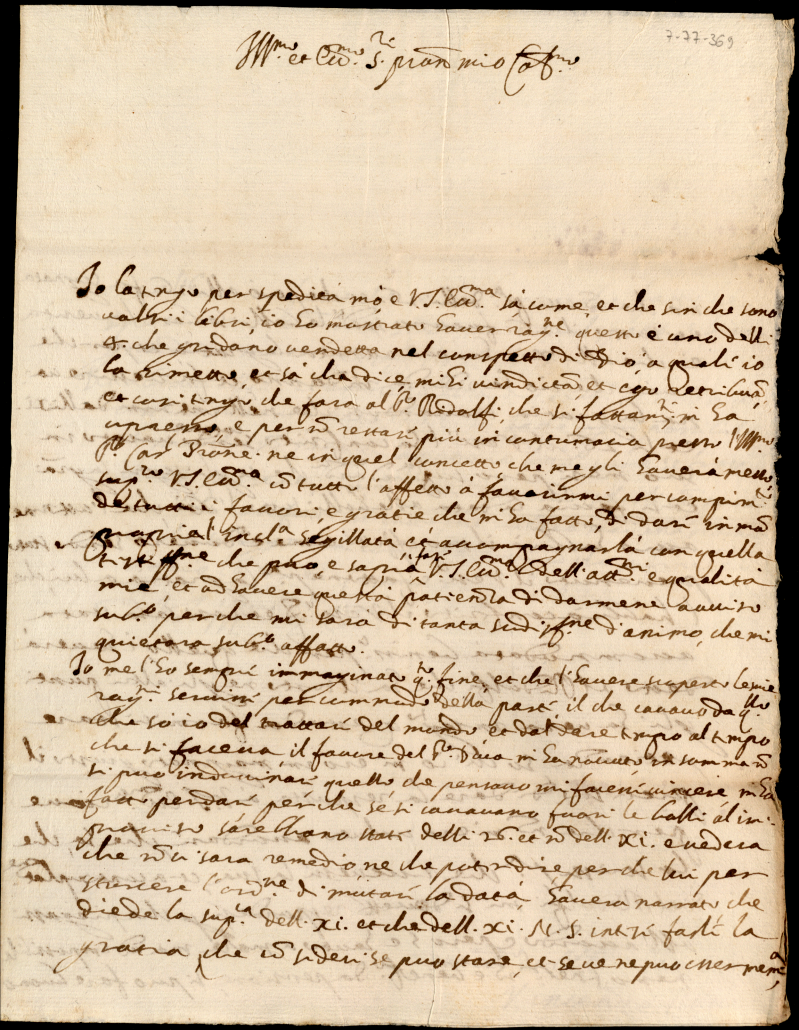 7-77-369
Ill.mo et Ecc.mo S.re pron mio Col.mo
Io la tengo per spedita mò e V.S. Ecc.ma sà come, et che sin che sono
i libri, io ho mostrato haver rag.ne questo è uno delli
4. che gridano vendetta nel conspetto di Dio, a quali io
la rimetto, et sà cha dice mihi vindictam et ego retribuam
et cosi tengo che farà al P.re Ridolfi, che si m'ha
e per nõ restare più in contumacia presso l'Ill.mo
P.re Car. ne in quel concetto che megli haverà messo,
sup.co V.S. Ecc.ma cõ tutto l'affetto à favorirmi per compim.to
de tutti i favori, e gratie che mi ha fatto, di dare in mã
propria l'incl.a sigillata et accompagnarla con quella
che può, e saprà fare V.S. Ecc.ma dell' e qualità
mie, et ad havere questa patienza di darmene avviso
sub.o perche mi sara di tanta sodisf.ne d'animo, che mi
quietarò sub.o affatto.
Io me l'ho sempre immaginato q.to fine, et che l'havere scuperto le mie
rag.ni servissi per commodo della parte il che cavavo da q.llo
che so io del trattare del mondo et dal dare tempo al tempo
che si faceva il favore del S.r Duca mi ha nociuto in somma nõ
si può indovinare, quello che pensavo mi facessi vincere m'ha
fatto perdare perche se si cavavano fuori le bolli al im-
proviso sarebbano state delli 26. et nõ dell. XI. e vederà
che nõ vi sara remedio ne che potendire perche lui per
storcere l'ord.ne di mutare la data, haverà narrato che
diede la sup.ca dell. XI. et che dell. XI. N. S. intese farli la
gratia, che cõsideri se può stare, et se ve ne può esser memoria,